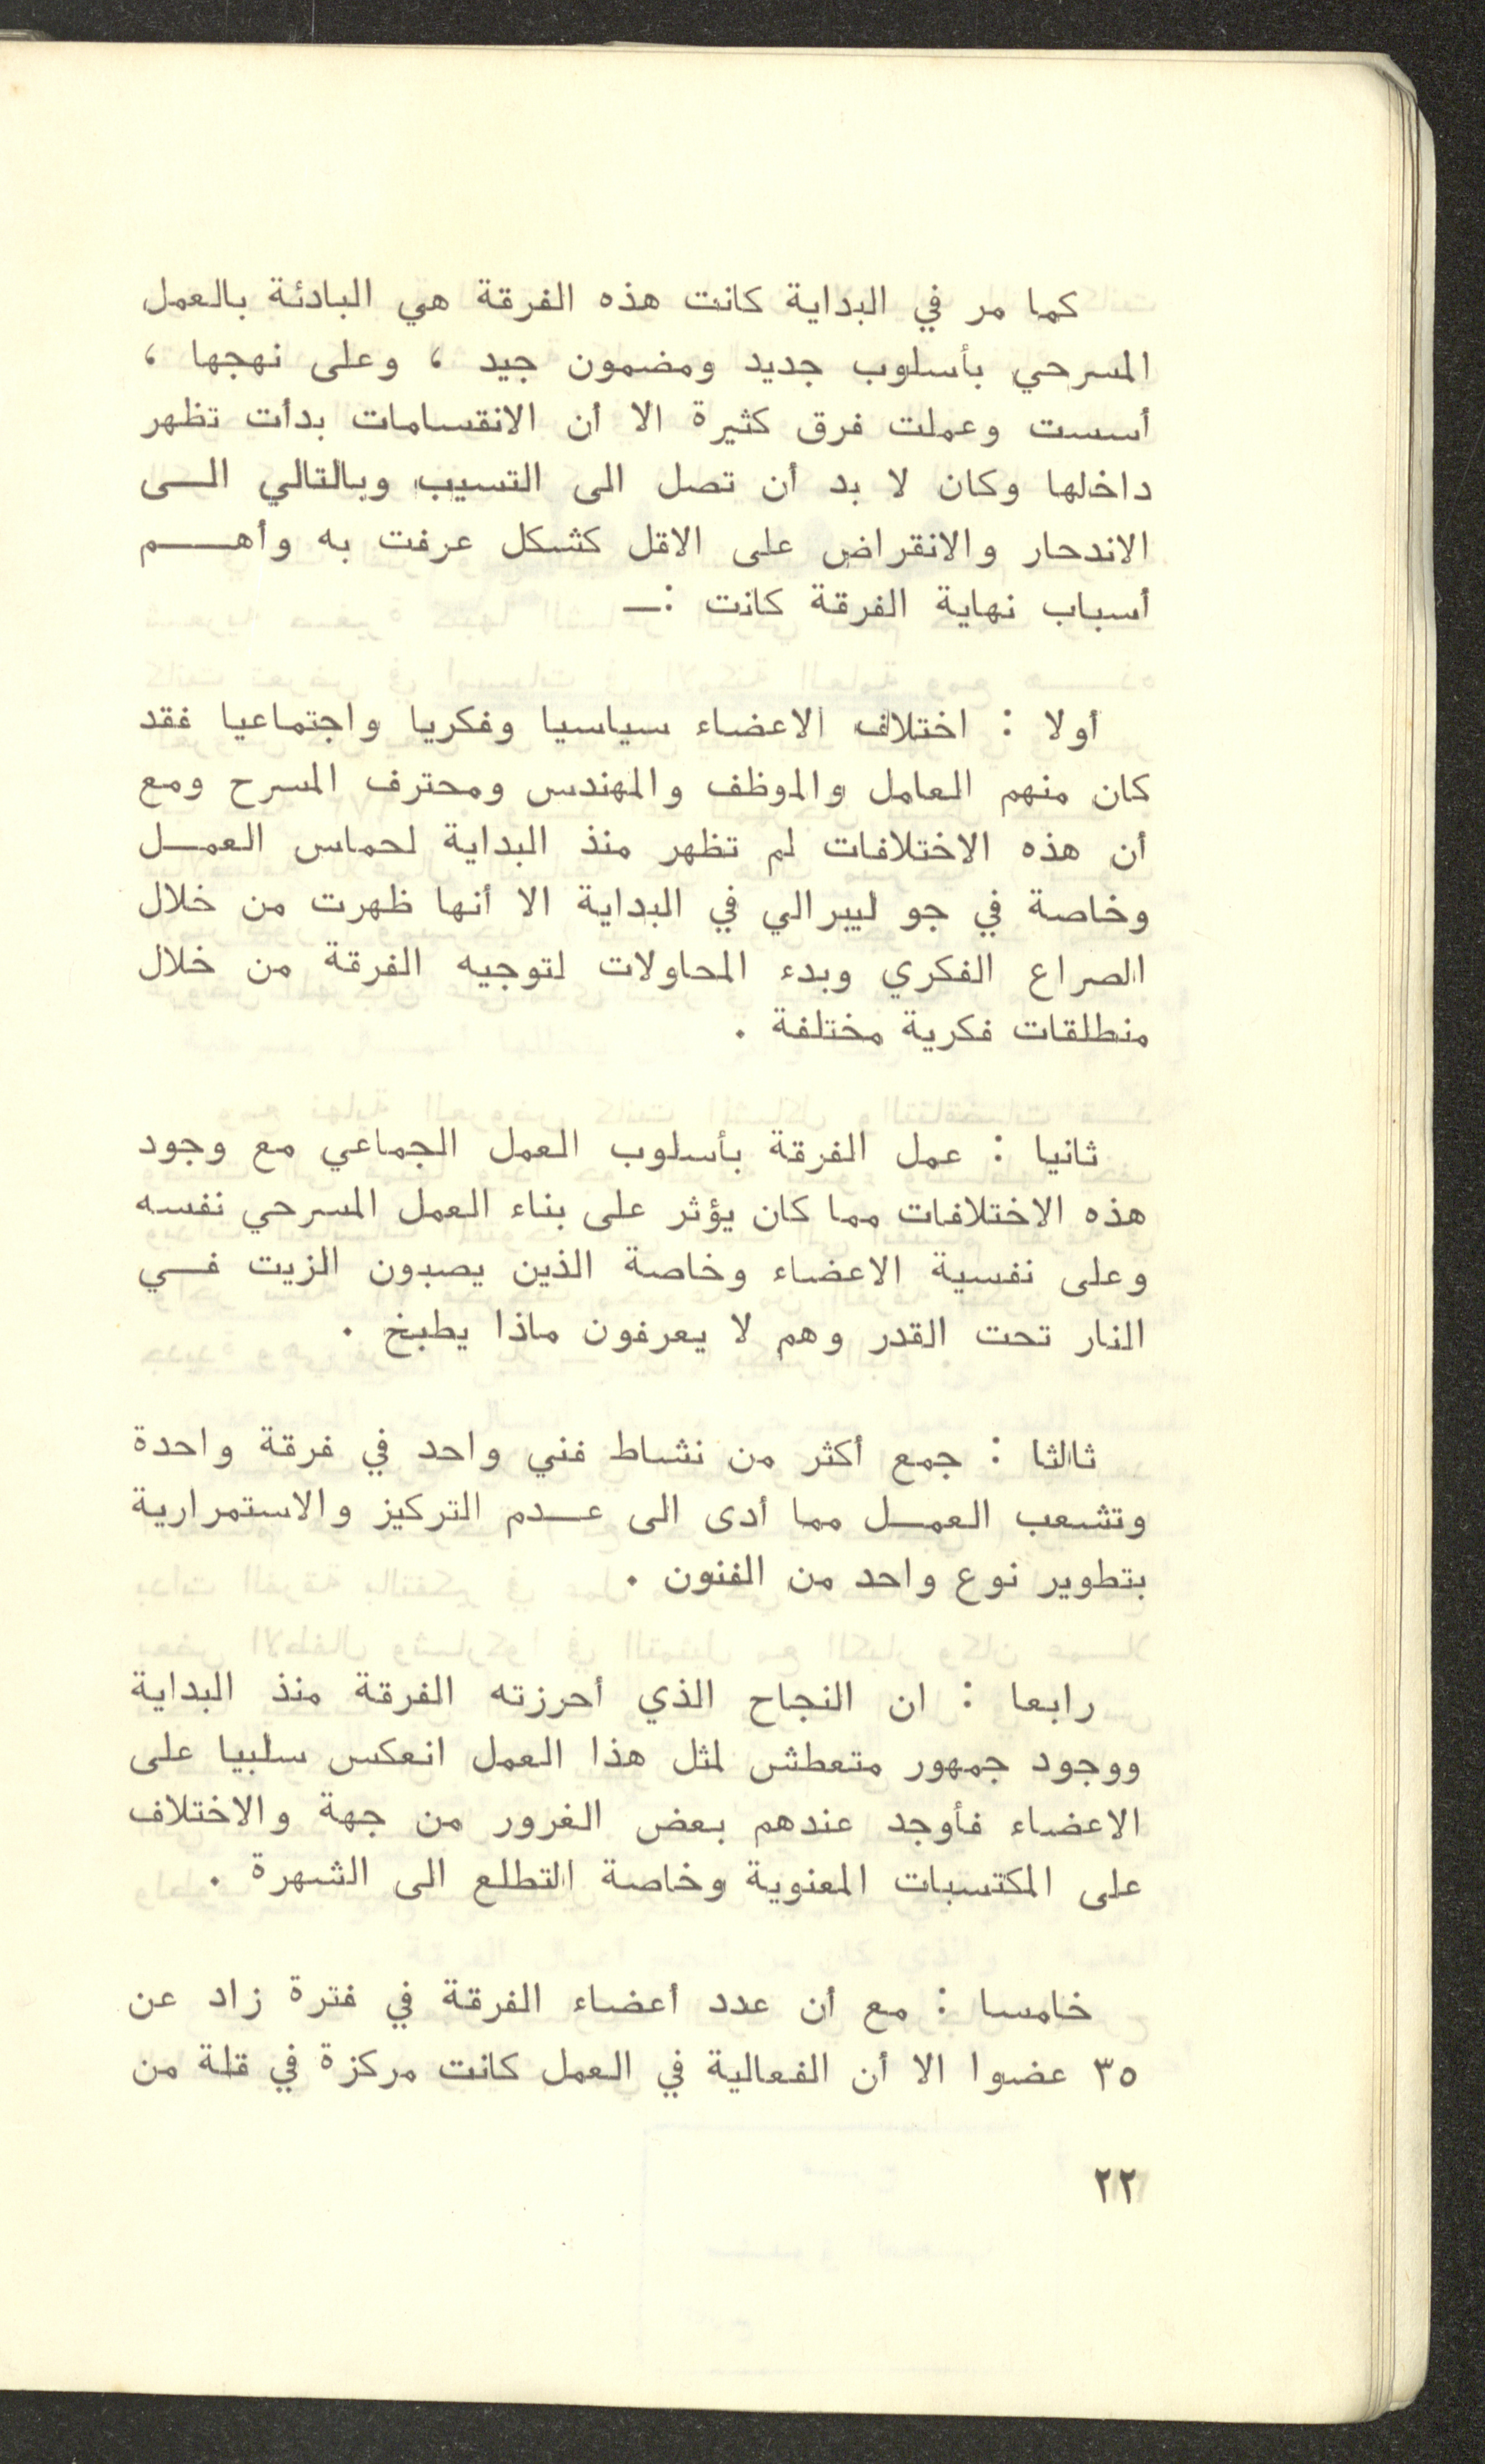 كما مر في البداية كانت هذه الفرقة هي البادئة بالعمل
المسرحي بأسلوب جديد ومضمون جيد ، وعلى نهجها ،
أسست وعملت فرق كثيرة الا أن الانقسامات بدأت تظهر
داخلها وكان لا بد أن تصل الى التسيب وبالتالي الـى
الاندحار والانقراض على الاقل كشكل عرفت به وأهـــم
أسباب نهاية الفرقة كانت :ـ
أولا : اختلاف الاعضاء سياسيا وفكريا واجتماعيا فقد
كان منهم العامل والموظف والمهندس ومحترف المسرح ومع
أن هذه الاختلافات لم تظهر منذ البداية لحماس العمــل
وخاصة في جو ليبرالي في البداية الا أنها ظهرت من خلال
الصراع الفكري وبدء المحاولات لتوجيه الفرقة من خلال
منطلقات فكرية مختلفة .
ثانيا : عمل الفرقة بأسلوب العمل الجماعي مع وجود
هذه الاختلافات مما كان يؤثر على بناء العمل المسرحي نفسه
وعلى نفسية الاعضاء وخاصة الذين يصبون الزيت فـــي
النار تحت القدر وهم لا يعرفون ماذا يطبخ .
ثالثا : جمع أكثر من نشاط فني واحد في فرقة واحدة
وتشعب العمــل مما أدى الى عــدم التركيز والاستمرارية
بتطوير نوع واحد من الفنون .
رابعا : ان النجاح الذي أحرزته الفرقة منذ البداية
ووجود جمهور متعطش لمثل هذا العمل انعكس سلبيا على
الاعضاء فأوجد عندهم بعض الغرور من جهة والاختلاف
على المكتسبات المعنوية وخاصة التطلع الى الشهرة .
خامسا : مع أن عدد أعضاء الفرقة في فترة زاد عن
٣٥ عضوا الا أن الفعالية في العمل كانت مركزة في قلة من
٢٢